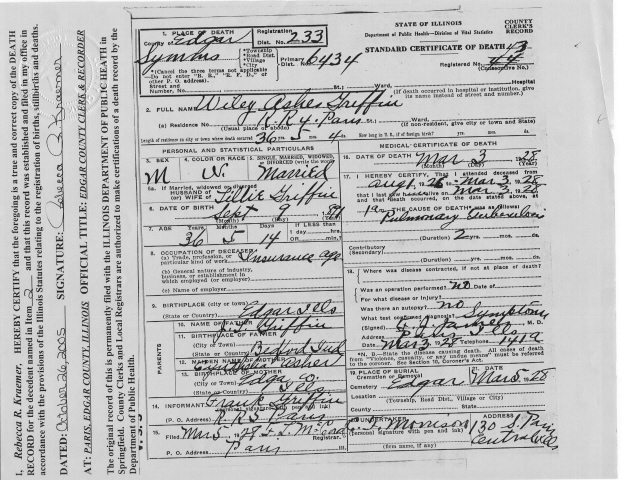 I, Rebecca R. Kraemer, HEREBY CERTIFY that the foregoing is a true and correct copy of the DEATH
RECORD for the decedent named in Item 2 and that this record was established and filed in my office in
accordance with the provisions of the Illinois Statutes relating to the registration of births, stillbirths and deaths.
DATED: October 26, 2005 SIGNATURE: Rebecca R. Kraemer
AT: PARIS, EDGAR COUNTY, ILLINOIS OFFICIAL TITLE: EDGAR COUNTY CLERK & RECORDER
The original record of this is permanently filed with the ILLINOIS DEPARTMENT OF PUBLIC HEATH in
Springfield. County Clerks and Local Registrars are authorized to make certifications of a death record by the
Department of Public Health.
STATE OF ILLINOIS
Department of Public Health—Division of Vital Statistics
COUNTY CLERK'S RECORD
STANDARD CERTIFICATE OF DEATH
Registered No. 43
44
(Consecutive No.)
1. PLACE OF DEATH
County of Edgar
Registration Dist. No. 233
Symms
*Township
*Road Dist.
*Village
*City
Primary Dist. No. 6434
*(Cancel the three terms not applicable
—Do not enter "R. R.," "R. F. D.," or
other P. O. address).
Street and
Number, No. St.; Ward, Hospital
(If death occurred in hospital or institution, give
its name instead of street and number.)
2. FULL NAME Wiley Asher Griffin
(a) Residence No. R.R. 4. Paris St., Ward,
(Usual place of abode) (If non-resident, give city or town and State)
Length of residence in city or town where death occurred 36 yrs. 5 mos. 4 ds. How long in U. S., if of foreign birth? yrs. mos. ds.
PERSONAL AND STATISTICAL PARTICULARS
3. SEX M
4. COLOR OR RACE W.
5. SINGLE, MARRIED, WIDOWED, or DIVORCED (write the word) Married
5a. If Married, widowed or divorced
HUSBAND of
(or) WIFE of Tillie Griffin
6. DATE OF BIRTH Sept
(Month) (Day) (Year)
7. AGE 36 5 14
If LESS than
1 day hrs.
or min.?
8. OCCUPATION OF DECEASED
(a) Trade, profession, or
particular kind of work Insurance agt
(b) General nature of industry,
business, or establishment in
which employed (or employer)
(c) Name of employer
9. BIRTHPLACE (city or town)
(State or Country) Edgar Ills
PARENTS
10. NAME OF FATHER Griffin
11. BIRTHPLACE OF FATHER
(State or Country) Bedford Ind
12. MAIDEN NAME OF MOTHER Asher
13. BIRTHPLACE OF MOTHER
(City or Town) Edgar Co.
(State or Country) Ills
14. INFORMANT Frank Griffin
(personal signature with pen and ink)
P. O. Address R.R.5 Paris
15. Filed Mar 5, 1928
Registrar.
P. O. Address Paris
MEDICAL CERTIFICATE OF DEATH
16. DATE OF DEATH Mar 3 1928
(Month) (Day) (Year)
17. I HEREBY CERTIFY, That I attended deceased from
Aug, 26 Mar 3, 28
that I last saw alive on Mar 3, 28
and that death occurred, on the date stated above, at
THE CAUSE OF DEATH was as follows:
Pulmonary Tuberculosis
(Duration) 2 yrs. mos. ds.
Contributory
(Secondary)
(Duration) yrs. mos. ds.
18. Where was disease contracted, if not at place of death?
Was an operation performed? no Date of
For what disease or injury?
Was there an autopsy? no
What test confirmed diagnosis? Symptoms
(Signed) M. D.
Address Ills
Date Mar 3, 28 Telephone 1419
*N. B.—State the disease causing death. All cases of death
from "violence, casualty, or any undue means" must be referred
to the coroner. See Section 10, Coroner's Act.
19. PLACE OF BURIAL
Cremation or Removal
Cemetery Edgar Mar 5 28
Location
(Township, Road Dist., Village or City)
County State
20. UNDERTAKER Morrison
(personal signature with pen and ink)
(firm name, if any)
ADDRESS
130 S.
Central